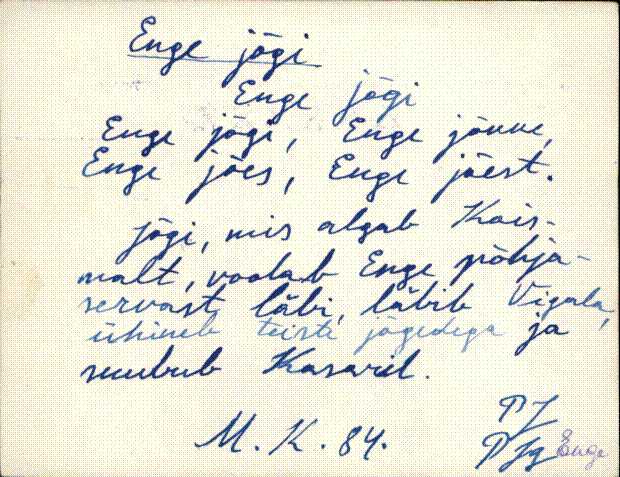 Enge jõgi
Enge jõgi
Enge jõgi, Enge jõkke,
Enge jões, Enge jõest.
Jõgi, mis algab Kais-
malt, voolab Enge põhja-
servast läbi, läbib Vigala,
ühineb teiste jõgedega ja
suubub Kasaril.
M. K. 84.
PJ
PJg Enge